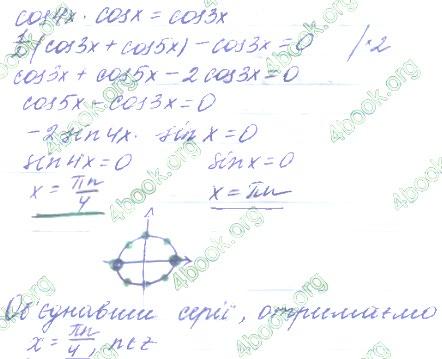 cos4x · cosx = cos3x
1/2 (cos3x + cos5x) - cos3x = 0 /·2
cos3x + cos5x - 2cos3x = 0
cos5x - cos3x = 0
-2sin4x · sinx = 0
sin4x = 0 sinx = 0
x = πn/4 x = πn
Об'єднавши серії, отримаємо
x = πn/4, n∈z
4book.org
4book.org
4book.org
4book.org
4book.org
4book.org